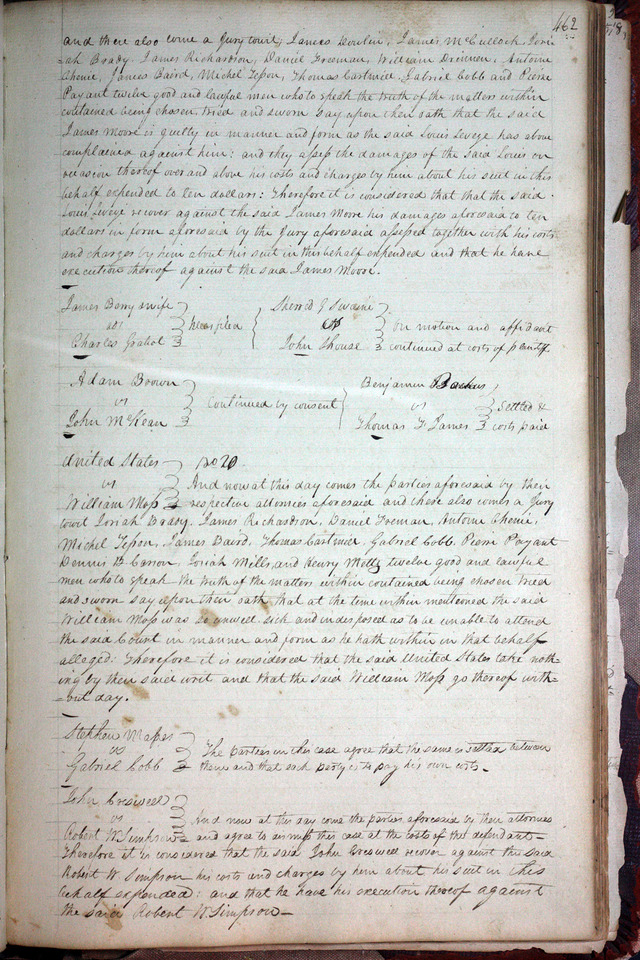 462
and there also come a Jury towit, James Dowlin, James McCulloch, Josi-
ah Brady, James Richardson, Daniel Freeman, William Drennen, Antoine
Chenie, James Baird, Michel Tesson, Thomas Cartmill, Gabriel Cobb and Pierre
Payant twelve good and lawful men who to speak the truth of the matters within
contained being chosen, tried and sworn say upon their oath that the said
James Moore is guilty in manner and form as the said Louis has above
complained against him: and they assess the damages of the said Louis on
occasion thereof over and above his costs and charges by him about his suit in this
behalf expended to ten dollars: Therefore it is considered that that the said
Louis recover against the said James More his damages aforesaid to ten
dollars in form aforesaid by the Jury aforesaid assessed together with his costs
and charges by him about his suit in this behalf expended and that he have
execution thereof against the said James Moore.
James Berry & wife
vs
Charles Gratiot
pleas filed
Sherrod J Swaine
vs
John Shouse
on motion and affidavit
continued at costs of plentff
Adam Brown
vs
John McKean
Continued by consent
Benjamin Backus
vs
Thomas F James
Settled &
costs paid
United States
vs
William Moss
No 20
And now at this day comes the parties aforesaid by their
respective attornies aforesaid and there also comes a Jury
towit Josiah Brady, James Richardson, Daniel Freman, Antoine Chenie,
Michel Tesson, James Baird, Thomas Cartmill, Gabriel Cobb, Pierre Payant
Dennis Carson, Josiah Mills, and Henry Mottz twelve good and lawful
men who to speak the truth of the matters within contained being chosen tried
and sworn say upon their oath, that at the time within mentioned the said
William Moss was so unwell sick and indisposed as to be unable to attend
the said Court in manner and form as he hath within in that behalf
alleged: Therefore it is considered that the said United States take noth-
ing by their said writ and that the said William Moss go thereof with-
-out day.
Stephen Mapes
vs
Gabriel Cobb
The parties in this case agree that the same is settled between
them and that each party is to pay his own costs.
John Creswell
vs
Robert W. Simpson
And now at this day come the parties aforesaid by their attornies
and agree to dismiss this case at the costs of the defendant
Therefore it is considered that the said John Creswell recover against the said
Robert W Simpson his costs and charges by him about his suit in this
behalf expended: and that he have his execution thereof against
the said Robert W. Simpson